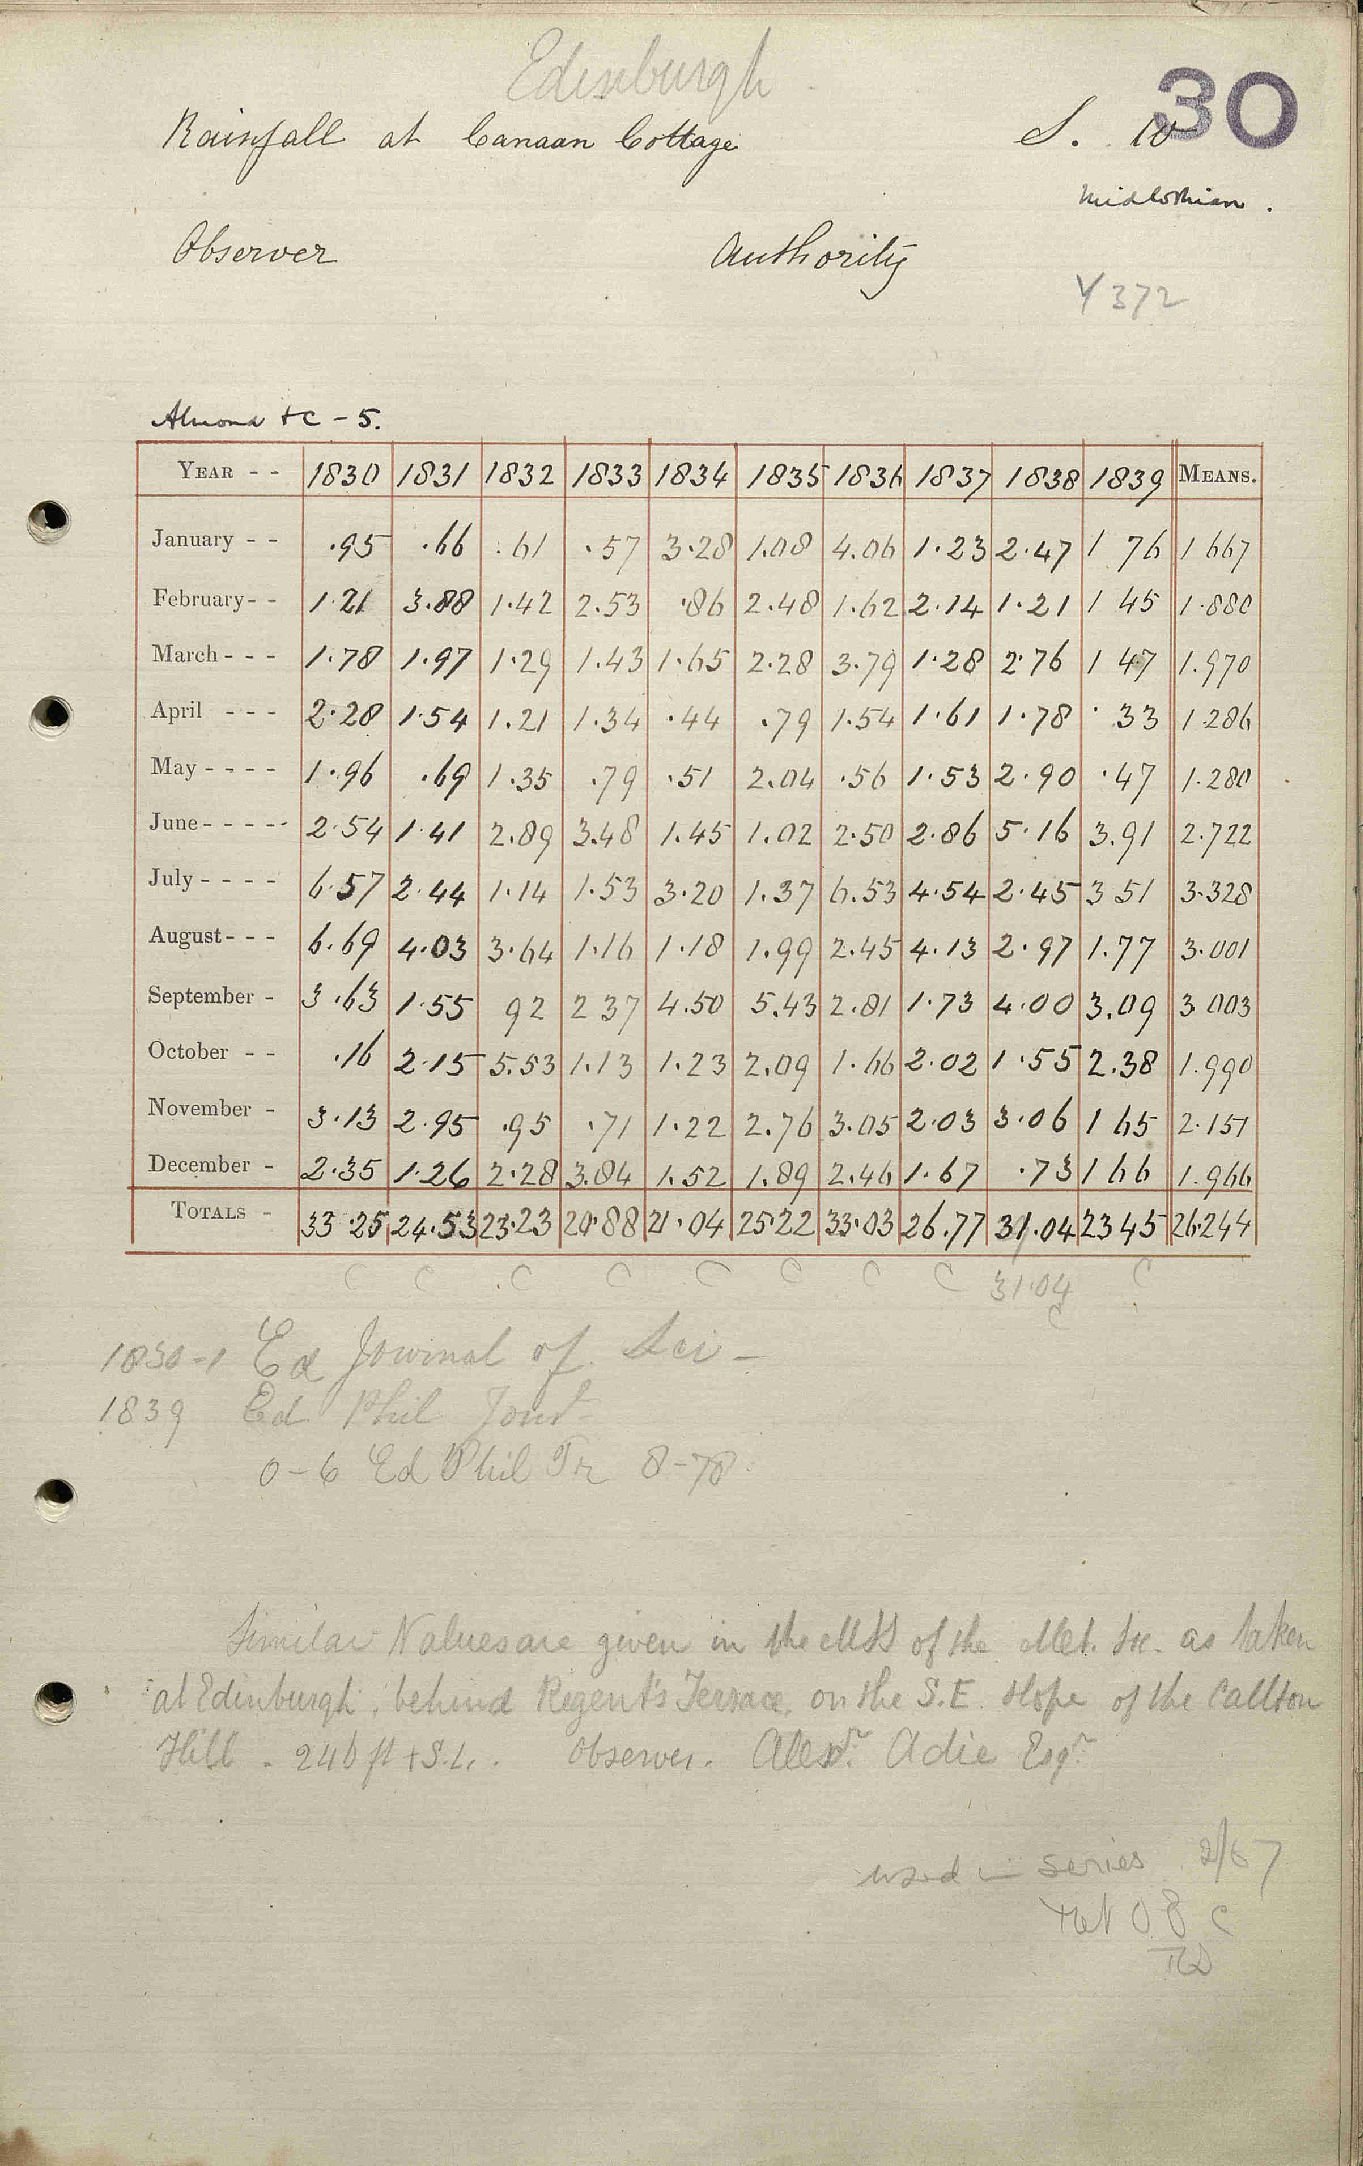 Edinburgh
30
Rainfall at Canaan Cottage S. 10
Midlothian.
Observer Authority
Y 372
Almond &c - 5.
YEAR - - 1830 1831 1832 1833 1834 1835 1836 1837 1838 1839 MEANS.
January - - .95 .66 .61 .57 3.28 1.08 4.06 1.23 2.47 1 76 1 667
February - - 1.21 3.88 1.42 2.53 .86 2.48 1.62 2.14 1.21 1 45 1.880
March - - - 1.78 1.97 1.29 1.43 1.65 2.28 3.79 1.28 2.76 1 47 1.970
April - - - 2.28 1.54 1.21 1.34 .44 .79 1.54 1.61 1.78 .33 1.286
May - - - - 1.96 .69 1.35 .79 .51 2.04 .56 1.53 2.90 .47 1.280
June - - - - - 2.54 1.41 2.89 3.48 1.45 1.02 2.50 2.86 5.16 3.91 2.722
July - - - - 6.57 2.44 1.14 1.53 3.20 1.37 6.53 4.54 2.45 3 51 3.328
August - - - 6.69 4.03 3.64 1.16 1.18 1.99 2.45 4.13 2.97 1.77 3.001
September - 3.63 1.55 92 2 37 4.50 5.43 2.81 1.73 4.00 3.09 3 003
October - - .16 2.15 5.53 1.13 1.23 2.09 1.66 2.02 1.55 2.38 1.990
November - 3.13 2.95 .95 .71 1.22 2.76 3.05 2.03 3.06 1 65 2.151
December - 2.35 1.26 2.28 3.84 1.52 1.89 2.46 1.67 .73 1 66 1.966
TOTALS - 33.25 24.53 23.23 20.88 21.04 25.22 33.03 26.77 31.04 23 45 26.244
C C C C C C C C 31.04 C
C
1830-1 Ed Journal of Sci -
1839 Ed Phil Jour.
0-6 Ed Phil Tr 8-78
Similar Values are given in the MSS of the Met. Soc. as taken
at Edinburgh, behind Regent's Terrace, on the S.E. slope of the Callton
Hill - 246 ft + S.L. Observer. Alexr. Adie Esqr
used in series 2/67
Met O 8 c